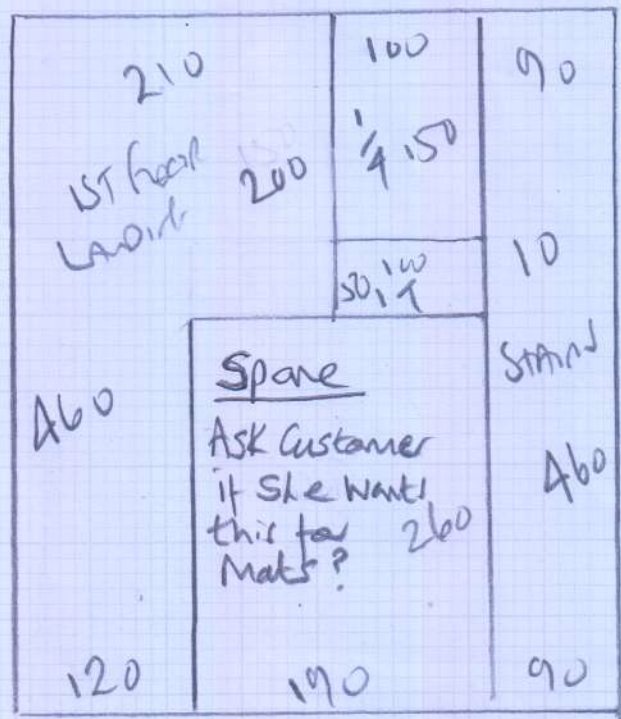 210
100
90
1ST floor
Landing
200
1/4 150
50, 100
10
Stairs
460
460
Spare
Ask Customer
if She wants
this for
Mats?
260
120
190
90